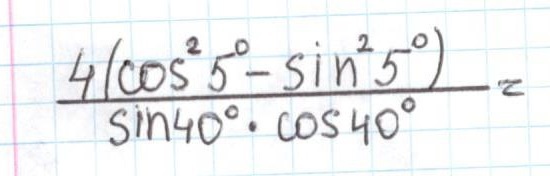 4(cos²5°-sin²5°)
sin40°·cos40° =